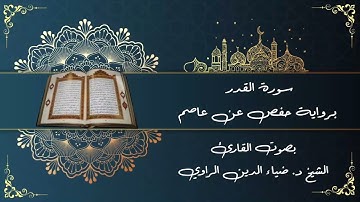 سورة القدر
برواية حفص عن عاصم
بصوت القارئ
الشيخ د. ضياء الدين الراوي